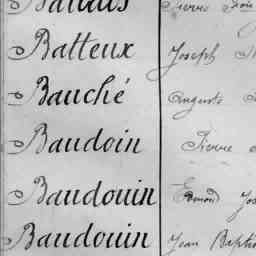 Batteux Joseph
Bauché Auguste
Baudoin Pierre
Baudouin Edmond
Baudouin Jean Baptis